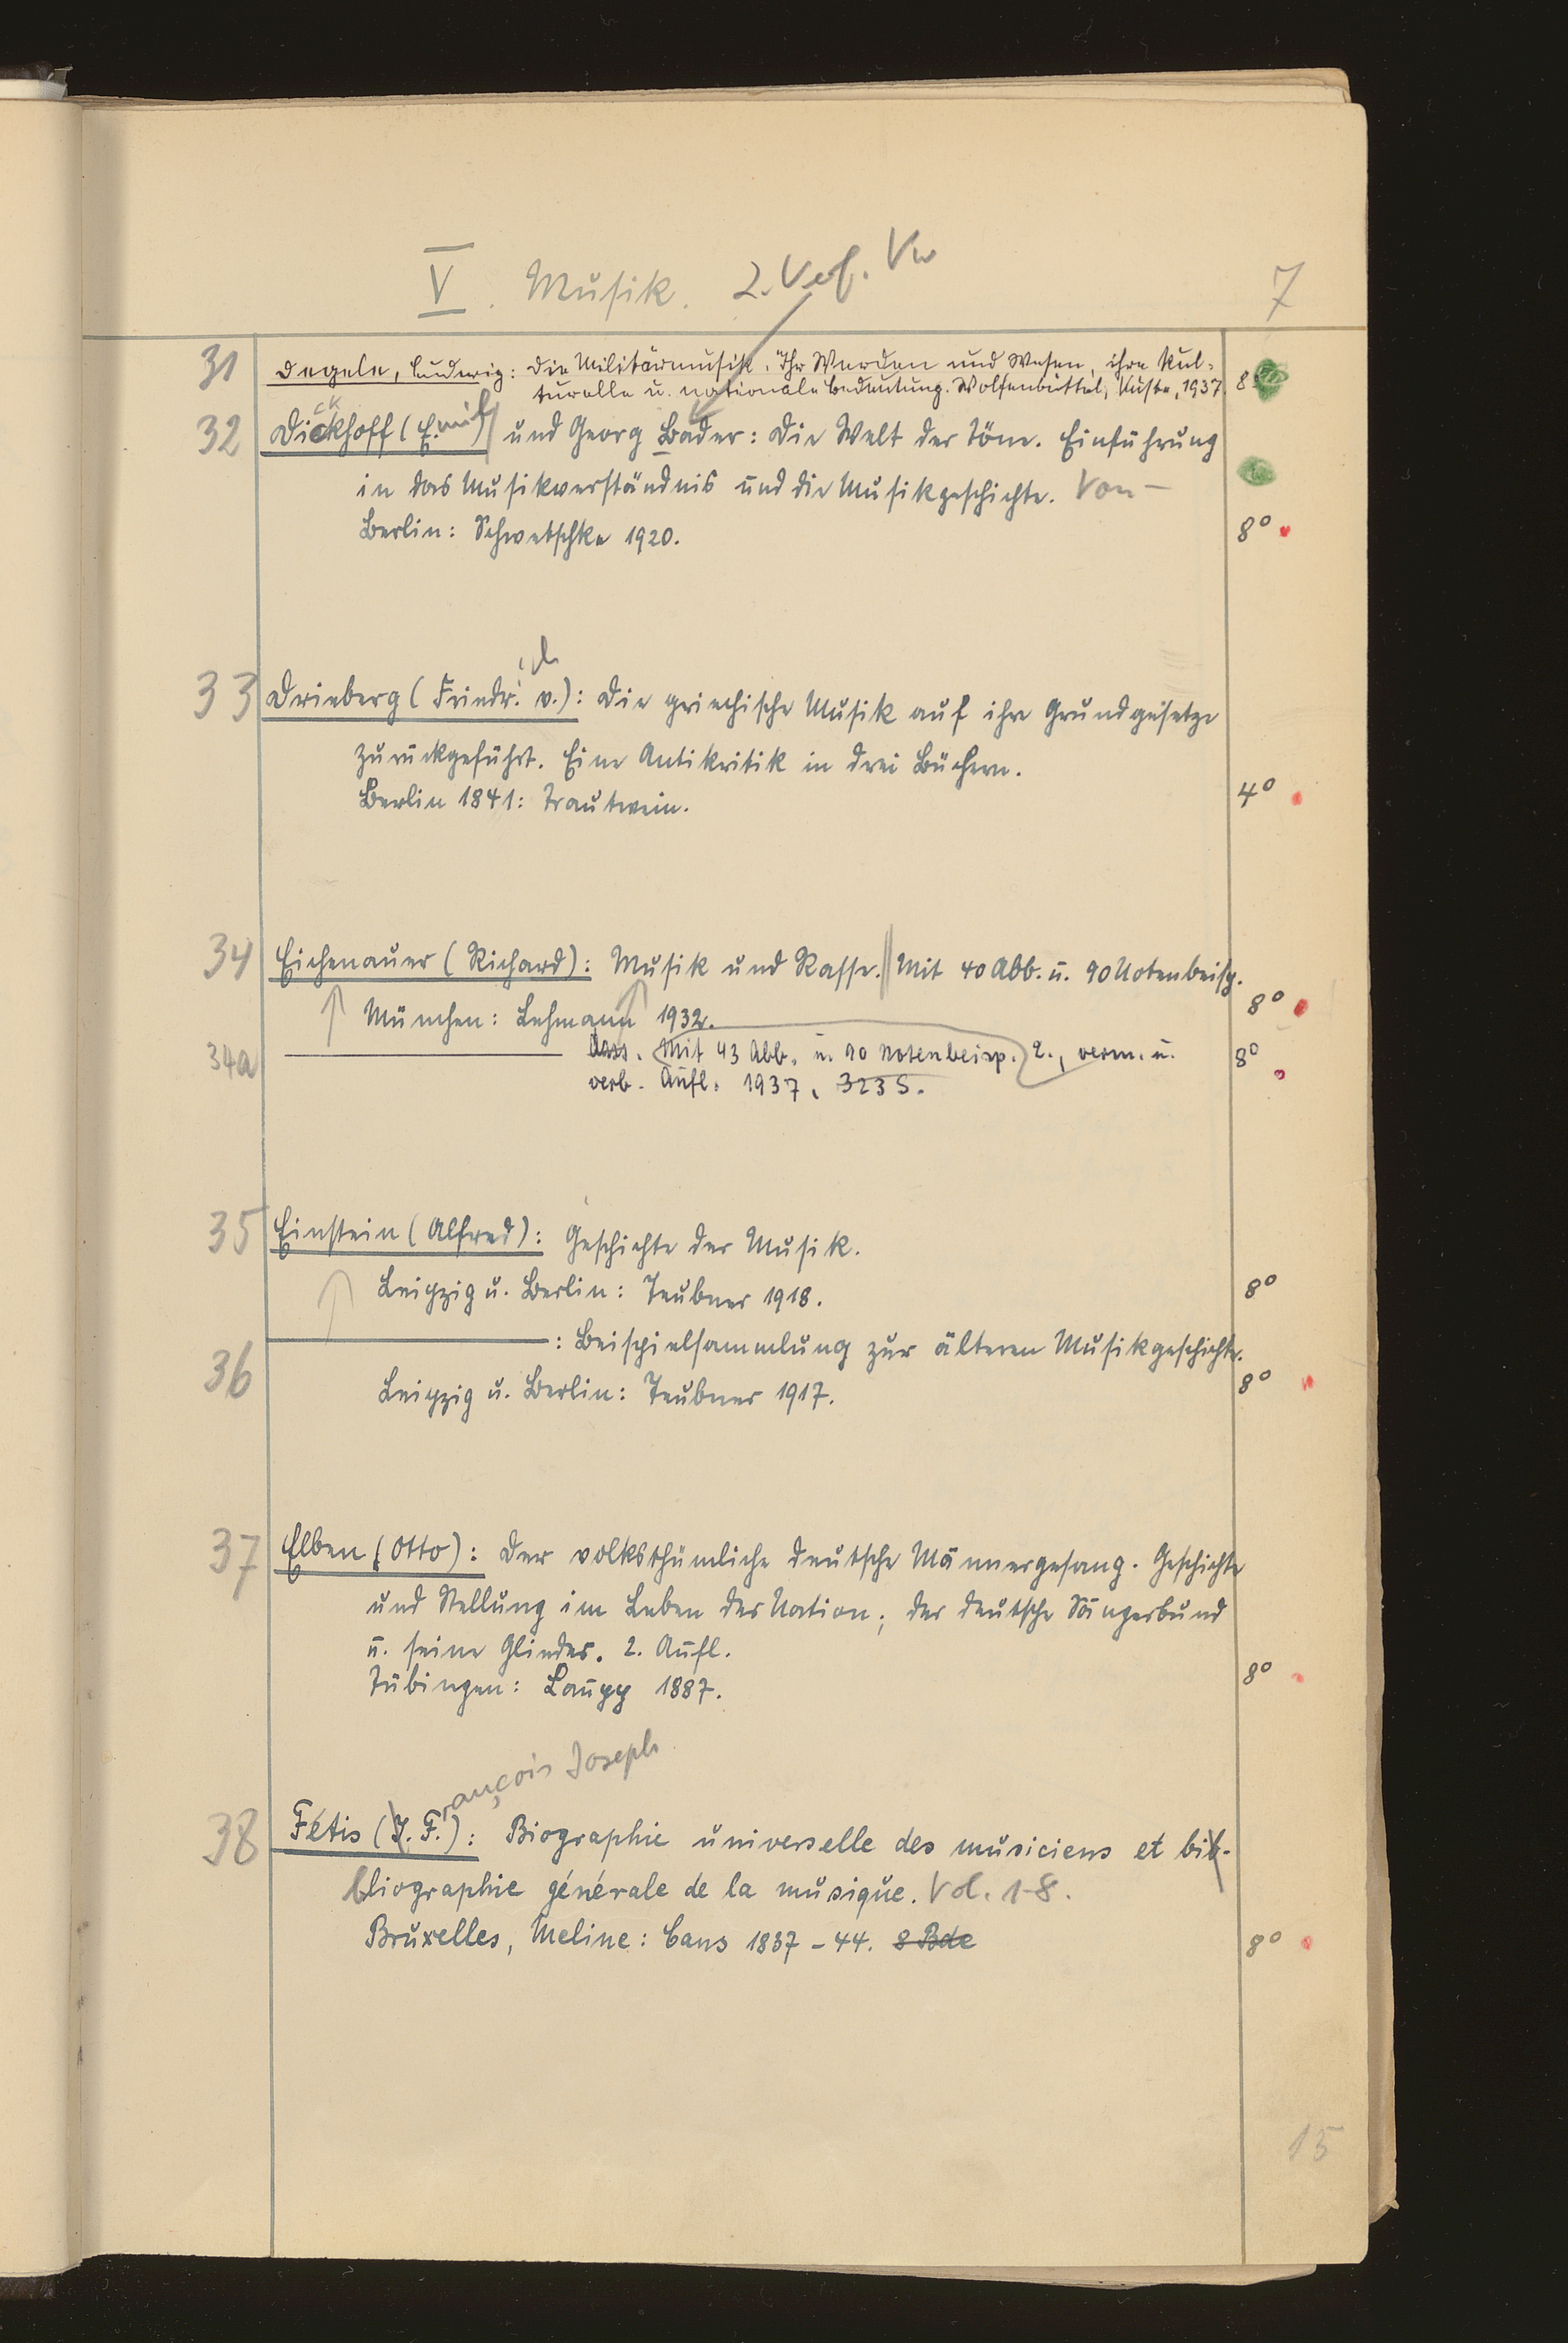 V. Musik. 2. Verf. Vw
7
31 Degele, Ludwig: Die Militärmusik. Ihr Werden und Wesen, ihre kul-
turelle u. nationale Bedeutung. Wolfenbüttel, 1937. 8°
32 Dickhoff (Emil) und Georg Bader: Die Welt der Töne. Einführung
in das Musikverständnis und die Musikgeschichte. Von –
Berlin: Schwetschke 1920. 8°
33 Drieberg (Friedr. v.): Die griechische Musik auf ihre Grundgesetze
zurückgeführt. Eine Antikritik in drei Büchern.
Berlin 1841: Trautwein. 4°
34 Eichenauer (Richard): Musik und Rasse. Mit 40 Abb. u. 90 Notenbeisp.
München: Lehmann 1932. 8°
34a ——— Dass. Mit 43 Abb. u. 90 Notenbeisp. 2., verm. u. 8°
verb. Aufl. 1937. 323 S.
35 Einstein (Alfred): Geschichte der Musik.
Leipzig u. Berlin: Teubner 1918. 8°
36 ———: Beispielsammlung zur älteren Musikgeschichte.
Leipzig u. Berlin: Teubner 1917. 8°
37 Elben (Otto): Der volksthümliche deutsche Männergesang. Geschichte
und Stellung im Leben der Nation; der deutsche Sängerbund
u. seine Glieder. 2. Aufl.
Tübingen: Laupp 1887. 8°
rançois Joseph
38 Fétis (J. F.): Biographie universelle des musiciens et bib-
bliographie générale de la musique. Vol. 1-8.
Bruxelles, Meline: Cans 1837-44. 8 Bde 8°
15